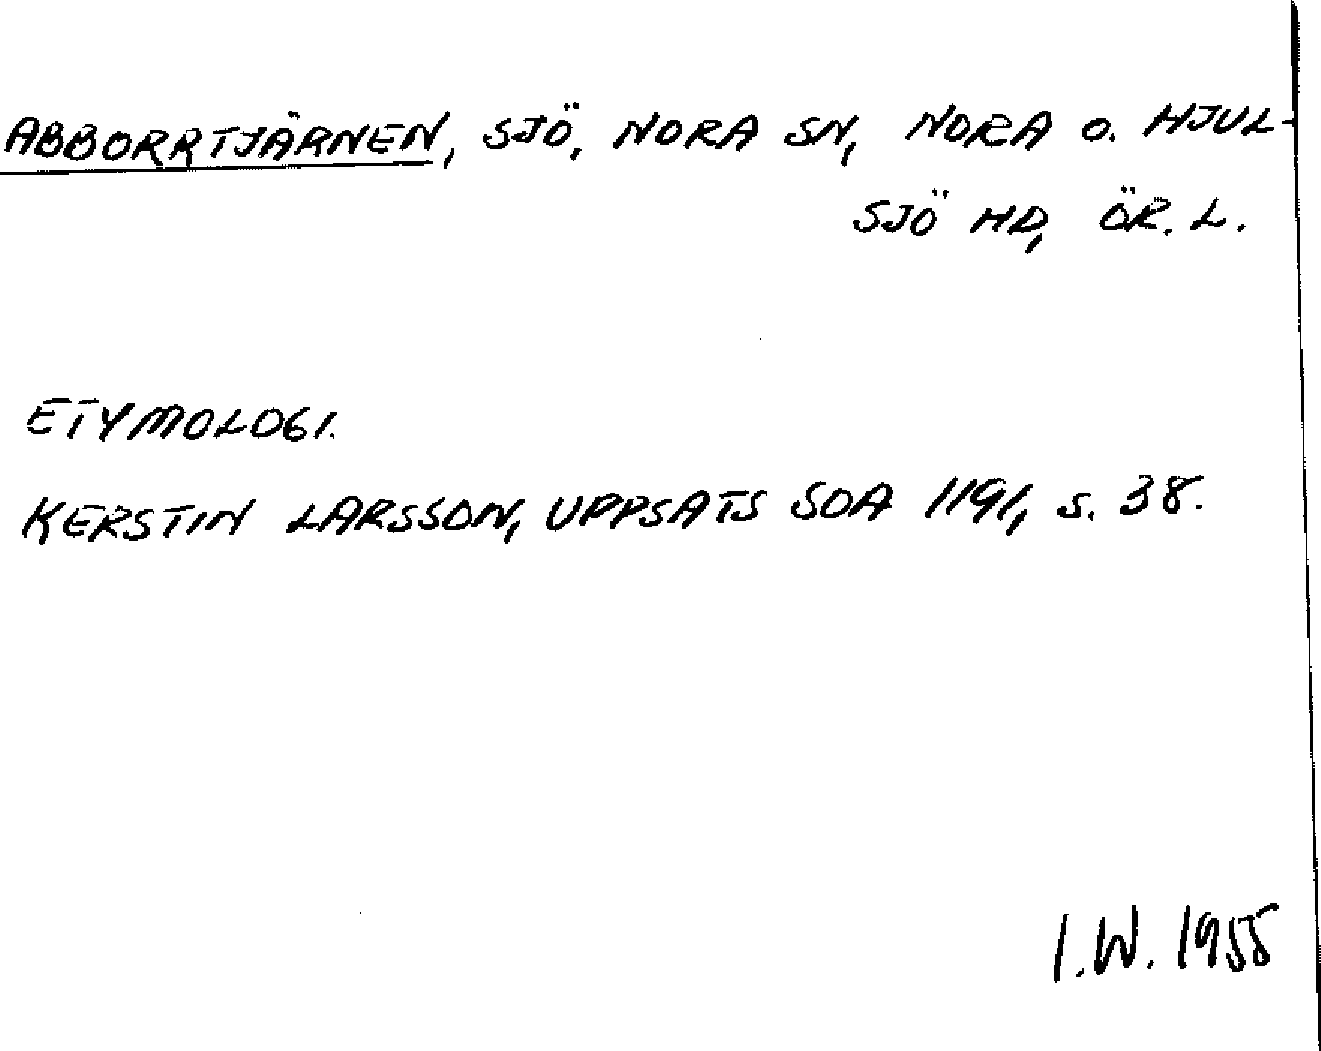 ABBORRTJÄRNEN, SJÖ, NORA SN, NORA O. HJUL-
SJÖ HD, ÖR. L.
ETYMOLOGI.
KERSTIN LARSSON, UPPSATS SOA 1191, S. 38.
I.W. 1955